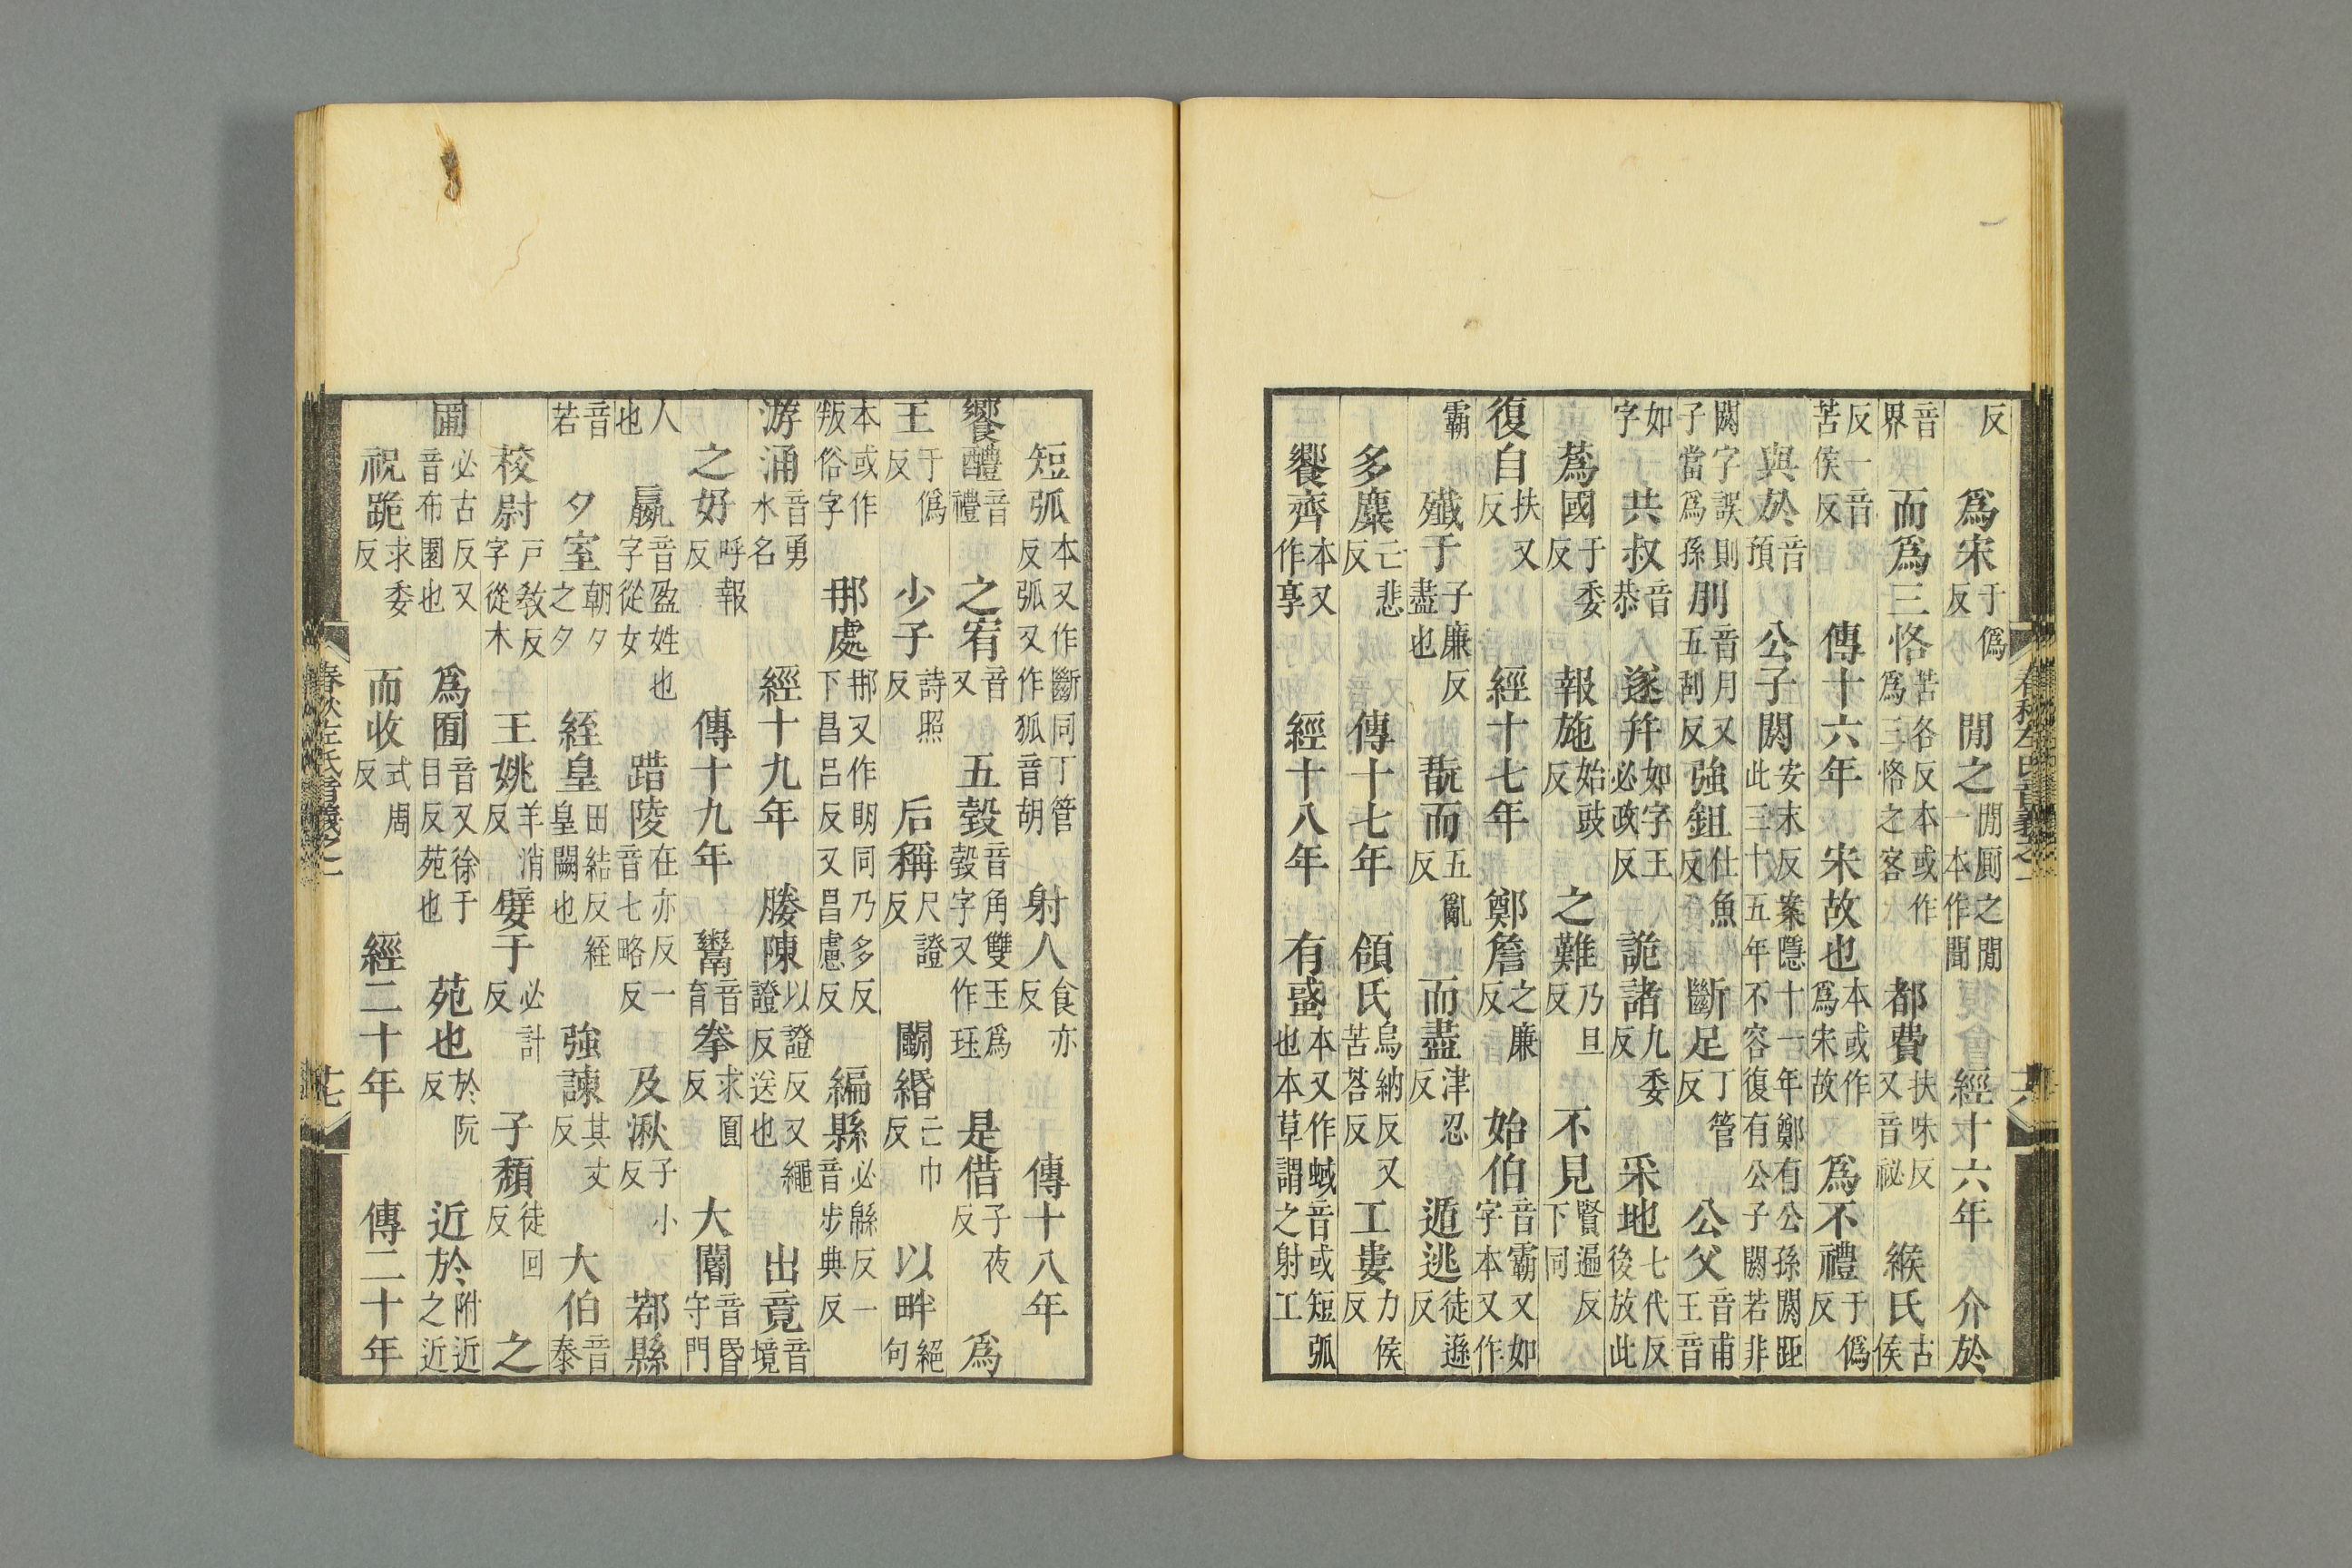 反　爲宋于僞反　閒之閒厠之閒一本作聞　經十六年　介於
音界　而爲三恪苦各反本或作爲三愘之客　都費扶味反又音祕　緱氏古侯
反一音苦侯反　傳十六年　宋故也本或作爲宋故　爲不禮于僞反
與於音預　公子閼安末反案隱十一年鄭有公孫閼距此三十五年不容復有公子閼若非
閼字誤則子當爲孫　刖音月又五刮反　強鉏仕魚反　斷足丁管反　公父音甫王音
如字　共叔音恭　遂幷如字王必政反　詭諸九委反　采地七代反後放此
蔿國于委反　報施始豉反　之難乃旦反　不見賢遍反下同
復自扶又反　經十七年　鄭詹之廉反　始伯音霸又如字本又作
霸　殲于子廉反盡也　翫而五亂反　而盡津忍反　遁逃徒遜反
多麋亡悲反　傳十七年　頜氏烏納反又苦荅反　工婁力侯反
饗齊本又作享　經十八年　有蜮本又作蜮音或短弧也本草謂之射工
短弧本又作斷同丁管反弧又作狐音胡　射人食亦反　傳十八年
饗醴音禮　之宥音又　五瑴音角雙玉爲瑴字又作珏　是借子夜反　爲
王于僞反　少子詩照反　后稱尺證反　鬭緡亡巾反　以畔絕句
本或作叛俗字　那處那又作䏍同乃多反下昌呂反又昌慮反　編縣必緜反一音步典反
游涌音勇水名　經十九年　媵陳以證反又繩證反送也　出竟音境
之好呼報反　傳十九年　鬻音育拳求圓反　大閽音昏守門
人也　嬴音盈姓也字從女　踖陵在亦反一音七略反　及湫子小反　鄀縣
音若　夕室朝夕之夕　絰皇田結反絰皇闕也　強諫其丈反　大伯音泰
校尉戸敎反字從木　王姚羊消反　嬖于必計反　子頽徒回反　之
圃必古反又音布園也　爲囿音又徐于目反苑也　苑也於阮反　近於附近之近
祝跪求委反　而收式周反　經二十年　傳二十年
春秋左氏音義之一